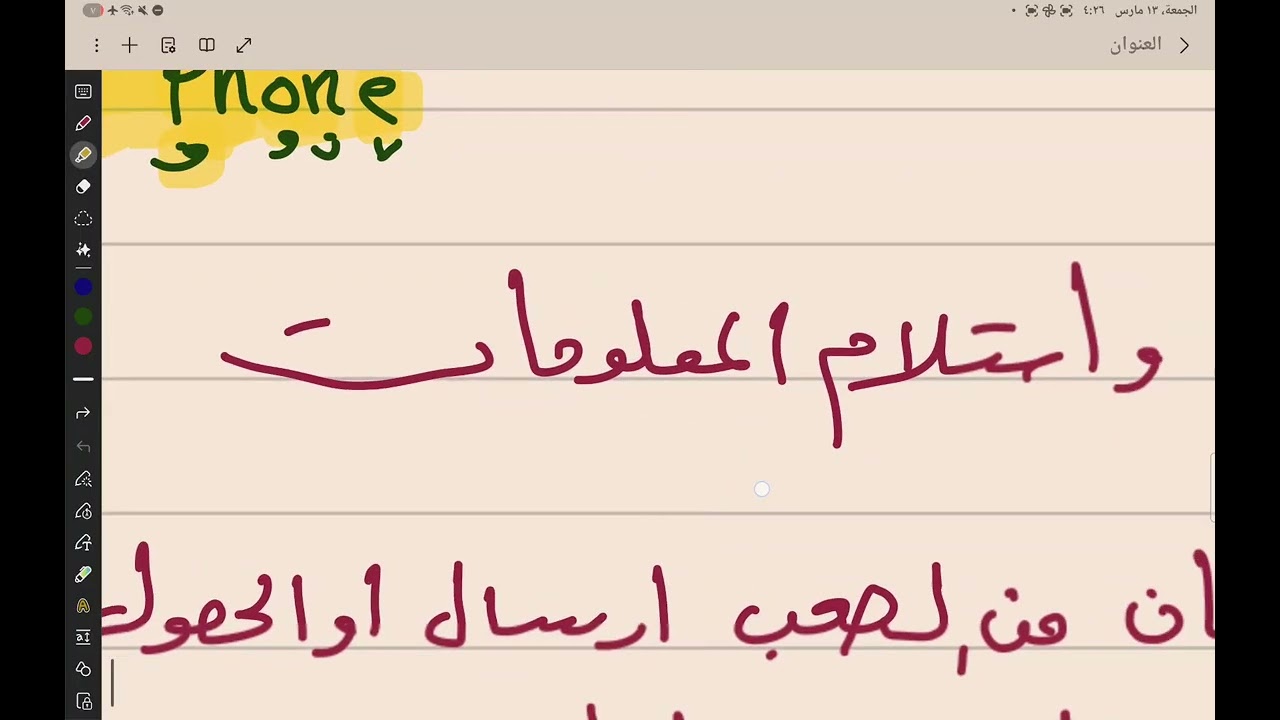 الجمعة، ١٣ مارس ٤:٢٦
العنوان
Phone
واستلام المعلومات
ان من لصعب ارسال او الحصول